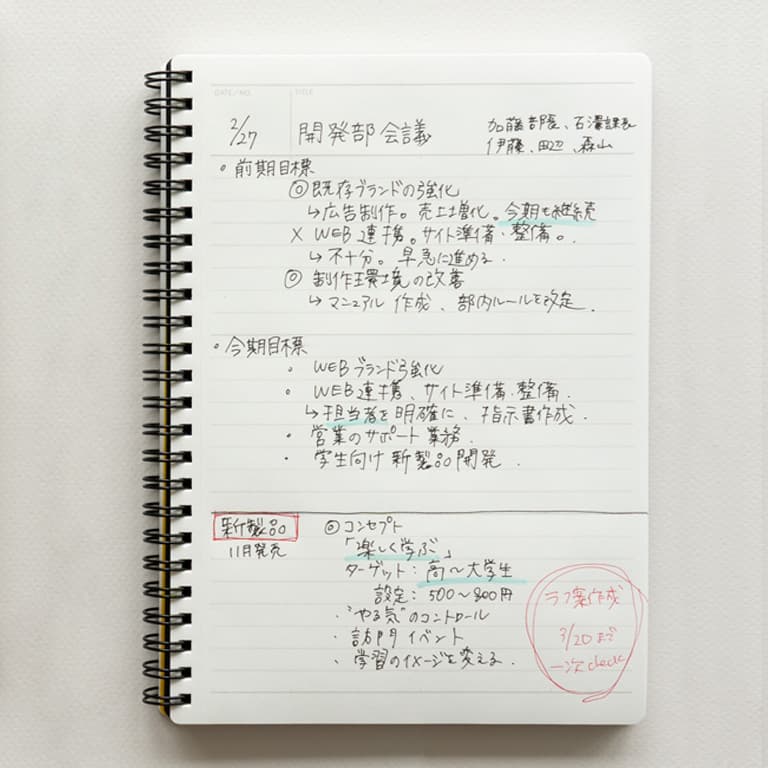 DATE/NO.
TITLE
2/27
開発部会議
加藤部長、石澤課長
伊藤、田辺、森山
・前期目標
◎既存ブランドの強化
↳広告制作。売上増化。今期も継続
× WEB連携。サイト準備・整備。
↳不十分。早急に進める.
◎ 制作環境の改善
↳マニュアル作成、部内ルールを改定.
・今期目標
・ WEBブランド強化
・ WEB連携、サイト準備・整備.
↳担当者を明確に、指示書作成.
・ 営業のサポート業務.
・ 学生向け新製品開発.
新製品
11月発売
◎コンセプト
「楽しく学ぶ」
ターゲット:高〜大学生
設定:500〜800円
・"やる気"のコントロール
・訪問イベント
・学習のイメージを変える.
ラフ案作成
3/20まで
一次check